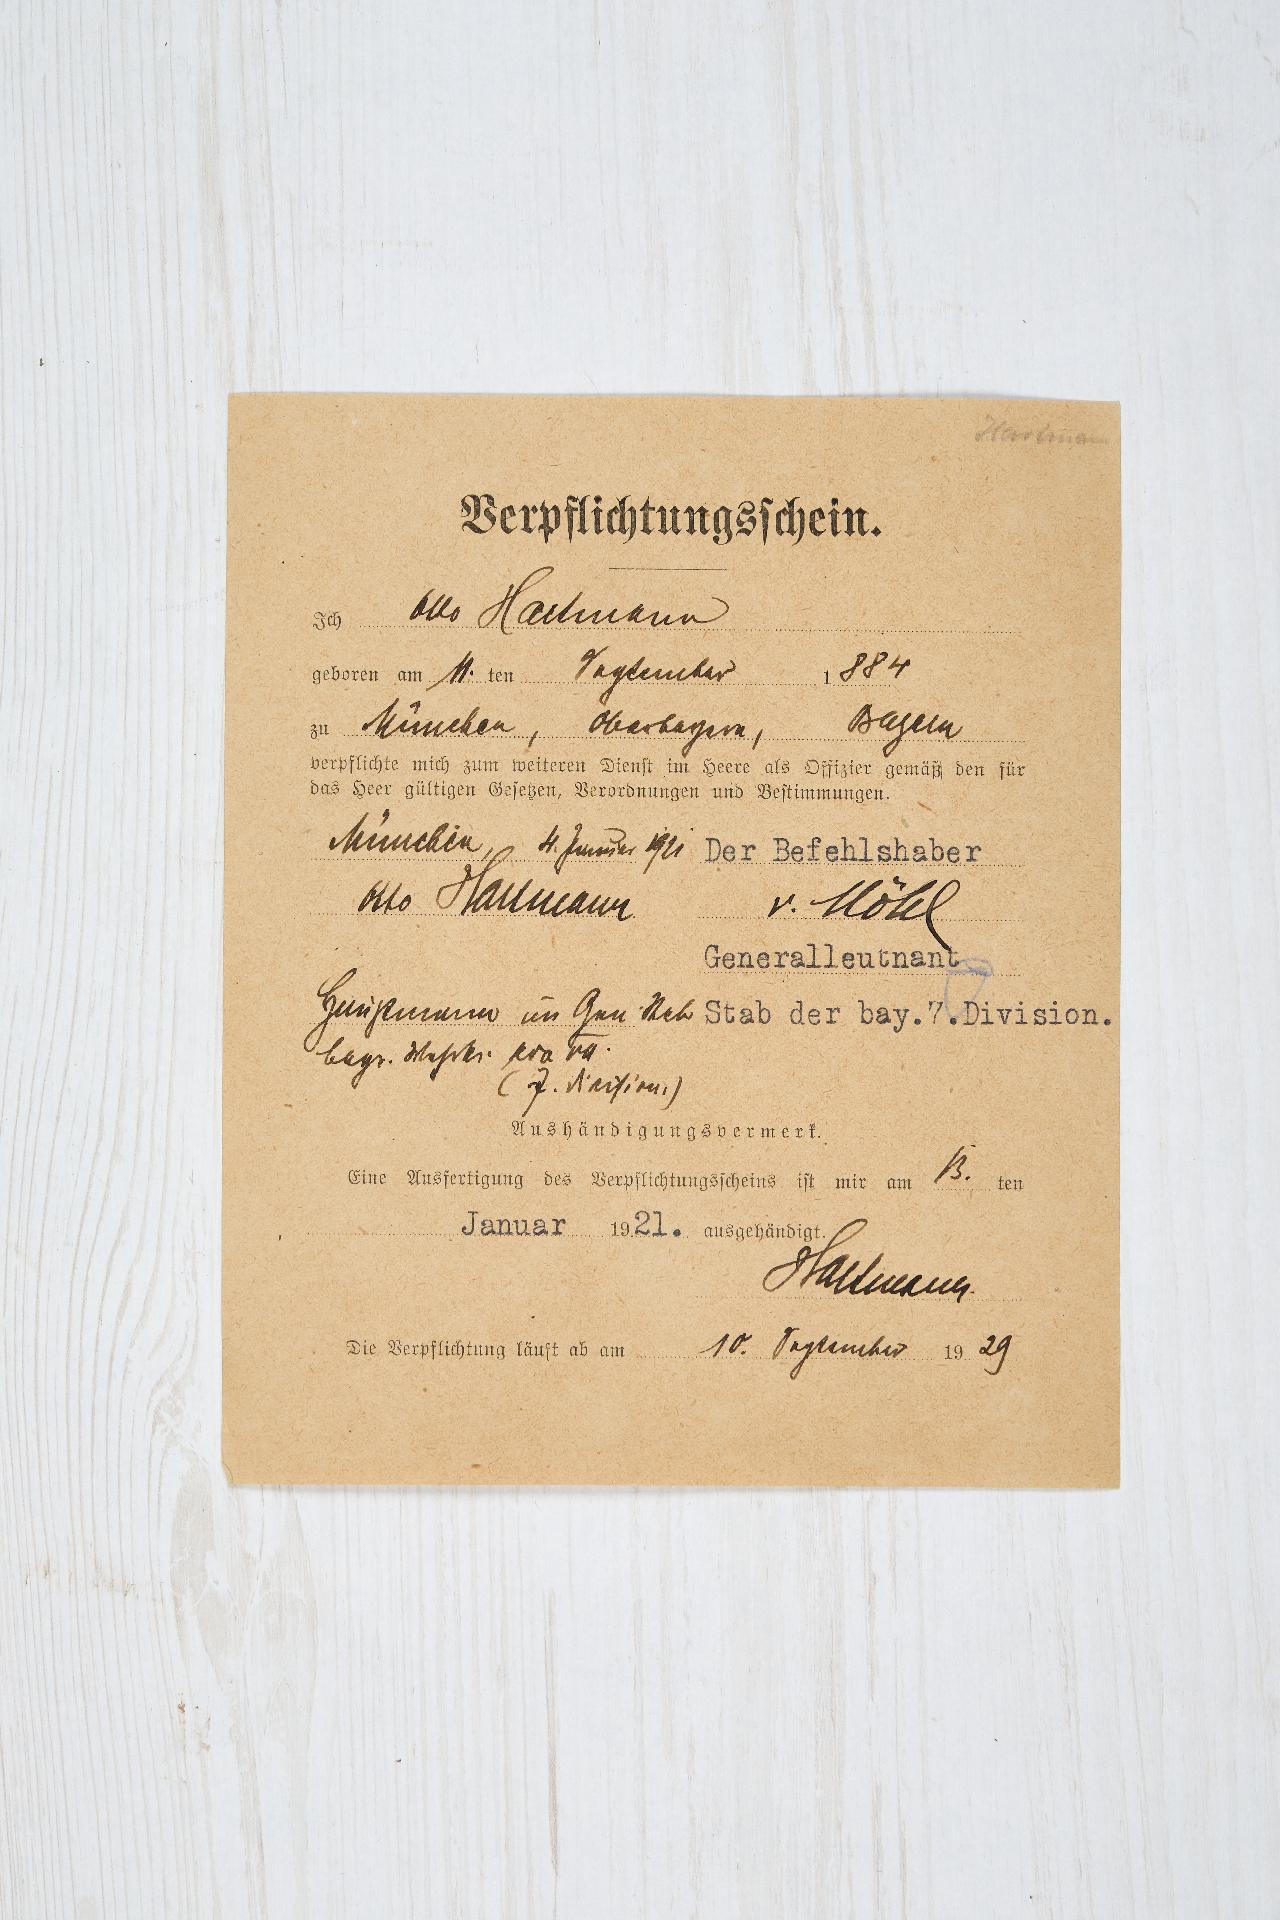 Hartmann
Verpflichtungsschein.
Ich Otto Hartmann
geboren am 11. ten September 1884
zu München, Oberbayern, Bayern
verpflichte mich zum weiteren Dienst im Heere als Offizier gemäß den für
das Heer gültigen Gesetzen, Verordnungen und Bestimmungen.
München, 4. Januar 1921 Der Befehlshaber
Otto Hartmann v. Möhl
Generalleutnant
Hauptmann im Gen Stab Stab der bay.7.Division.
bayr. Wehrkr. VII.
(7. Division.)
Aushändigungsvermerk.
Eine Ausfertigung des Verpflichtungsscheins ist mir am 13. ten
Januar 1921. ausgehändigt.
Hartmann
Die Verpflichtung läuft ab am 10. September 1929